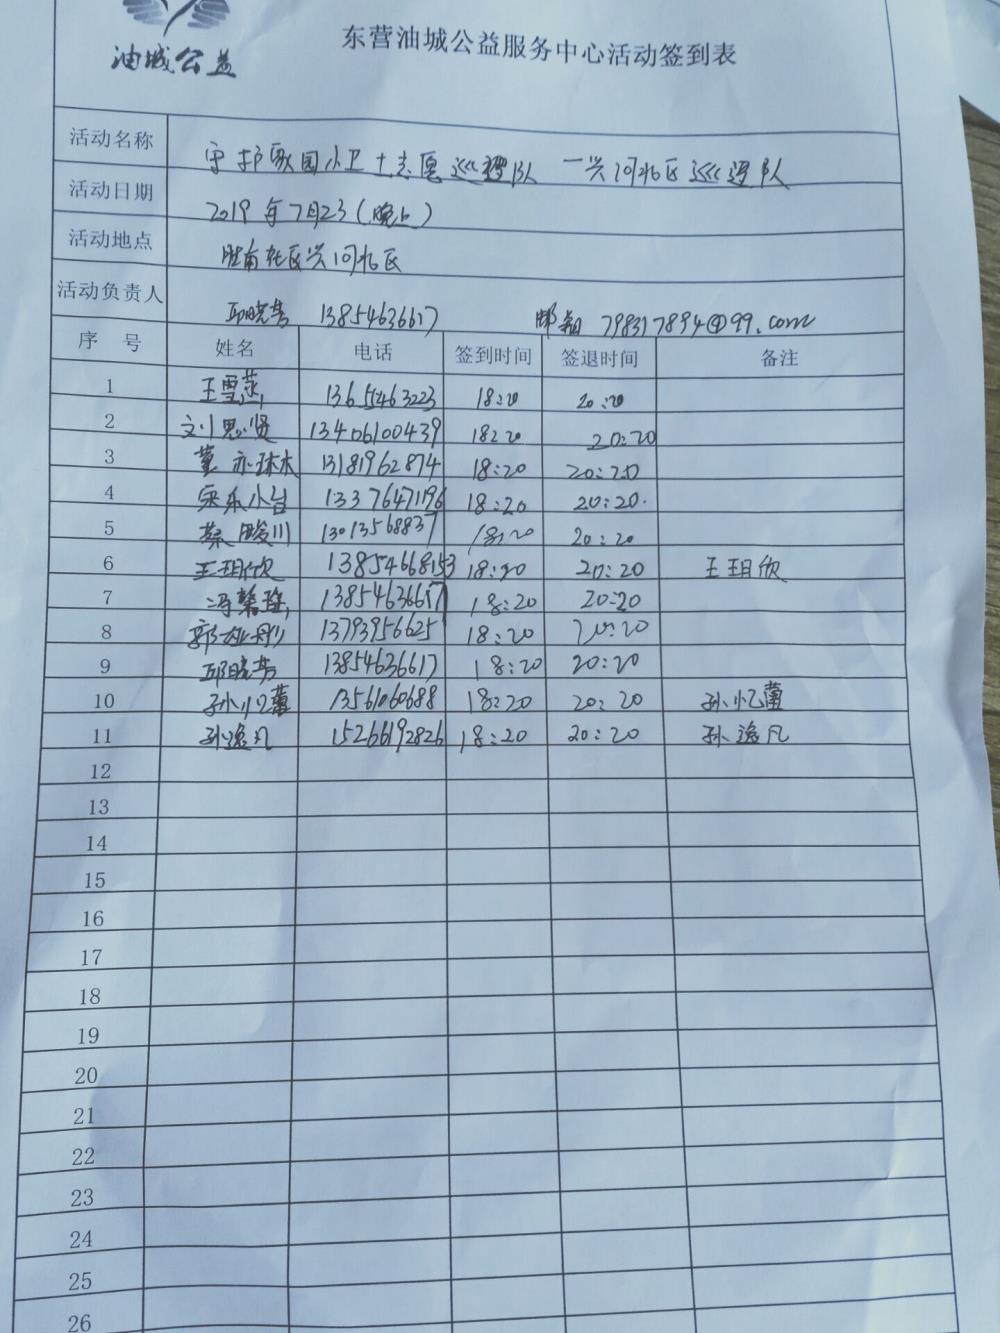 油城公益
东营油城公益服务中心活动签到表
活动名称 守护家园小卫士志愿巡逻队 —兴河北区巡逻队
活动日期 2019年7月23(晚上)
活动地点 胜南社区兴河北区
活动负责人 邱晓芳 13854636617 邮箱 798317894@qq.com
序 号 姓名 电话 签到时间 签退时间 备注
1 王雪 13655463223 18:20 20:20
2 刘思贤 13406100439 18:20 20:20
3 董亦琳 13181962874 18:20 20:20
4 13376471196 18:20 20:20.
5 蔡骏川 13013568837 18:20 20:20
6 王玥欣 13854668153 18:20 20:20 王玥欣
7 冯馨 13854636617 18:20 20:20
8 郭 13793956625 18:20 20:20
9 邱晓芳 13854636617 18:20 20:20
10 孙忆菡 13561060688 18:20 20:20 孙忆菡
11 孙逸凡 15266192826 18:20 20:20 孙逸凡
12
13
14
15
16
17
18
19
20
21
22
23
24
25
26